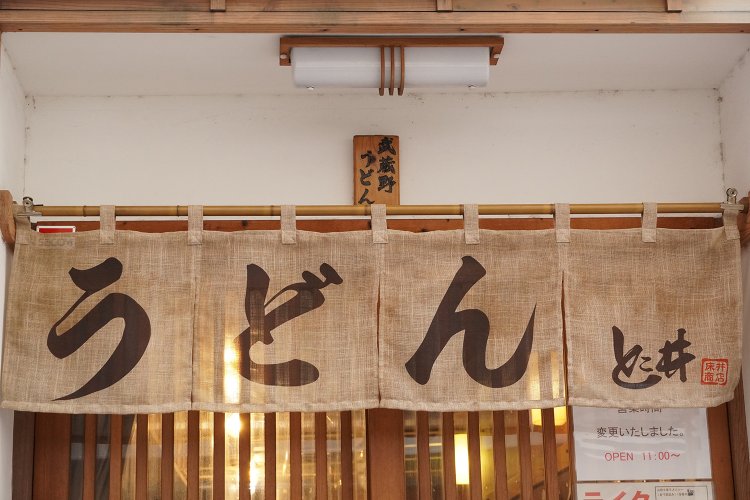 武蔵野
うどん
うどん
とこ井
営業時間
変更いたしました。
OPEN 11:00～
テイク